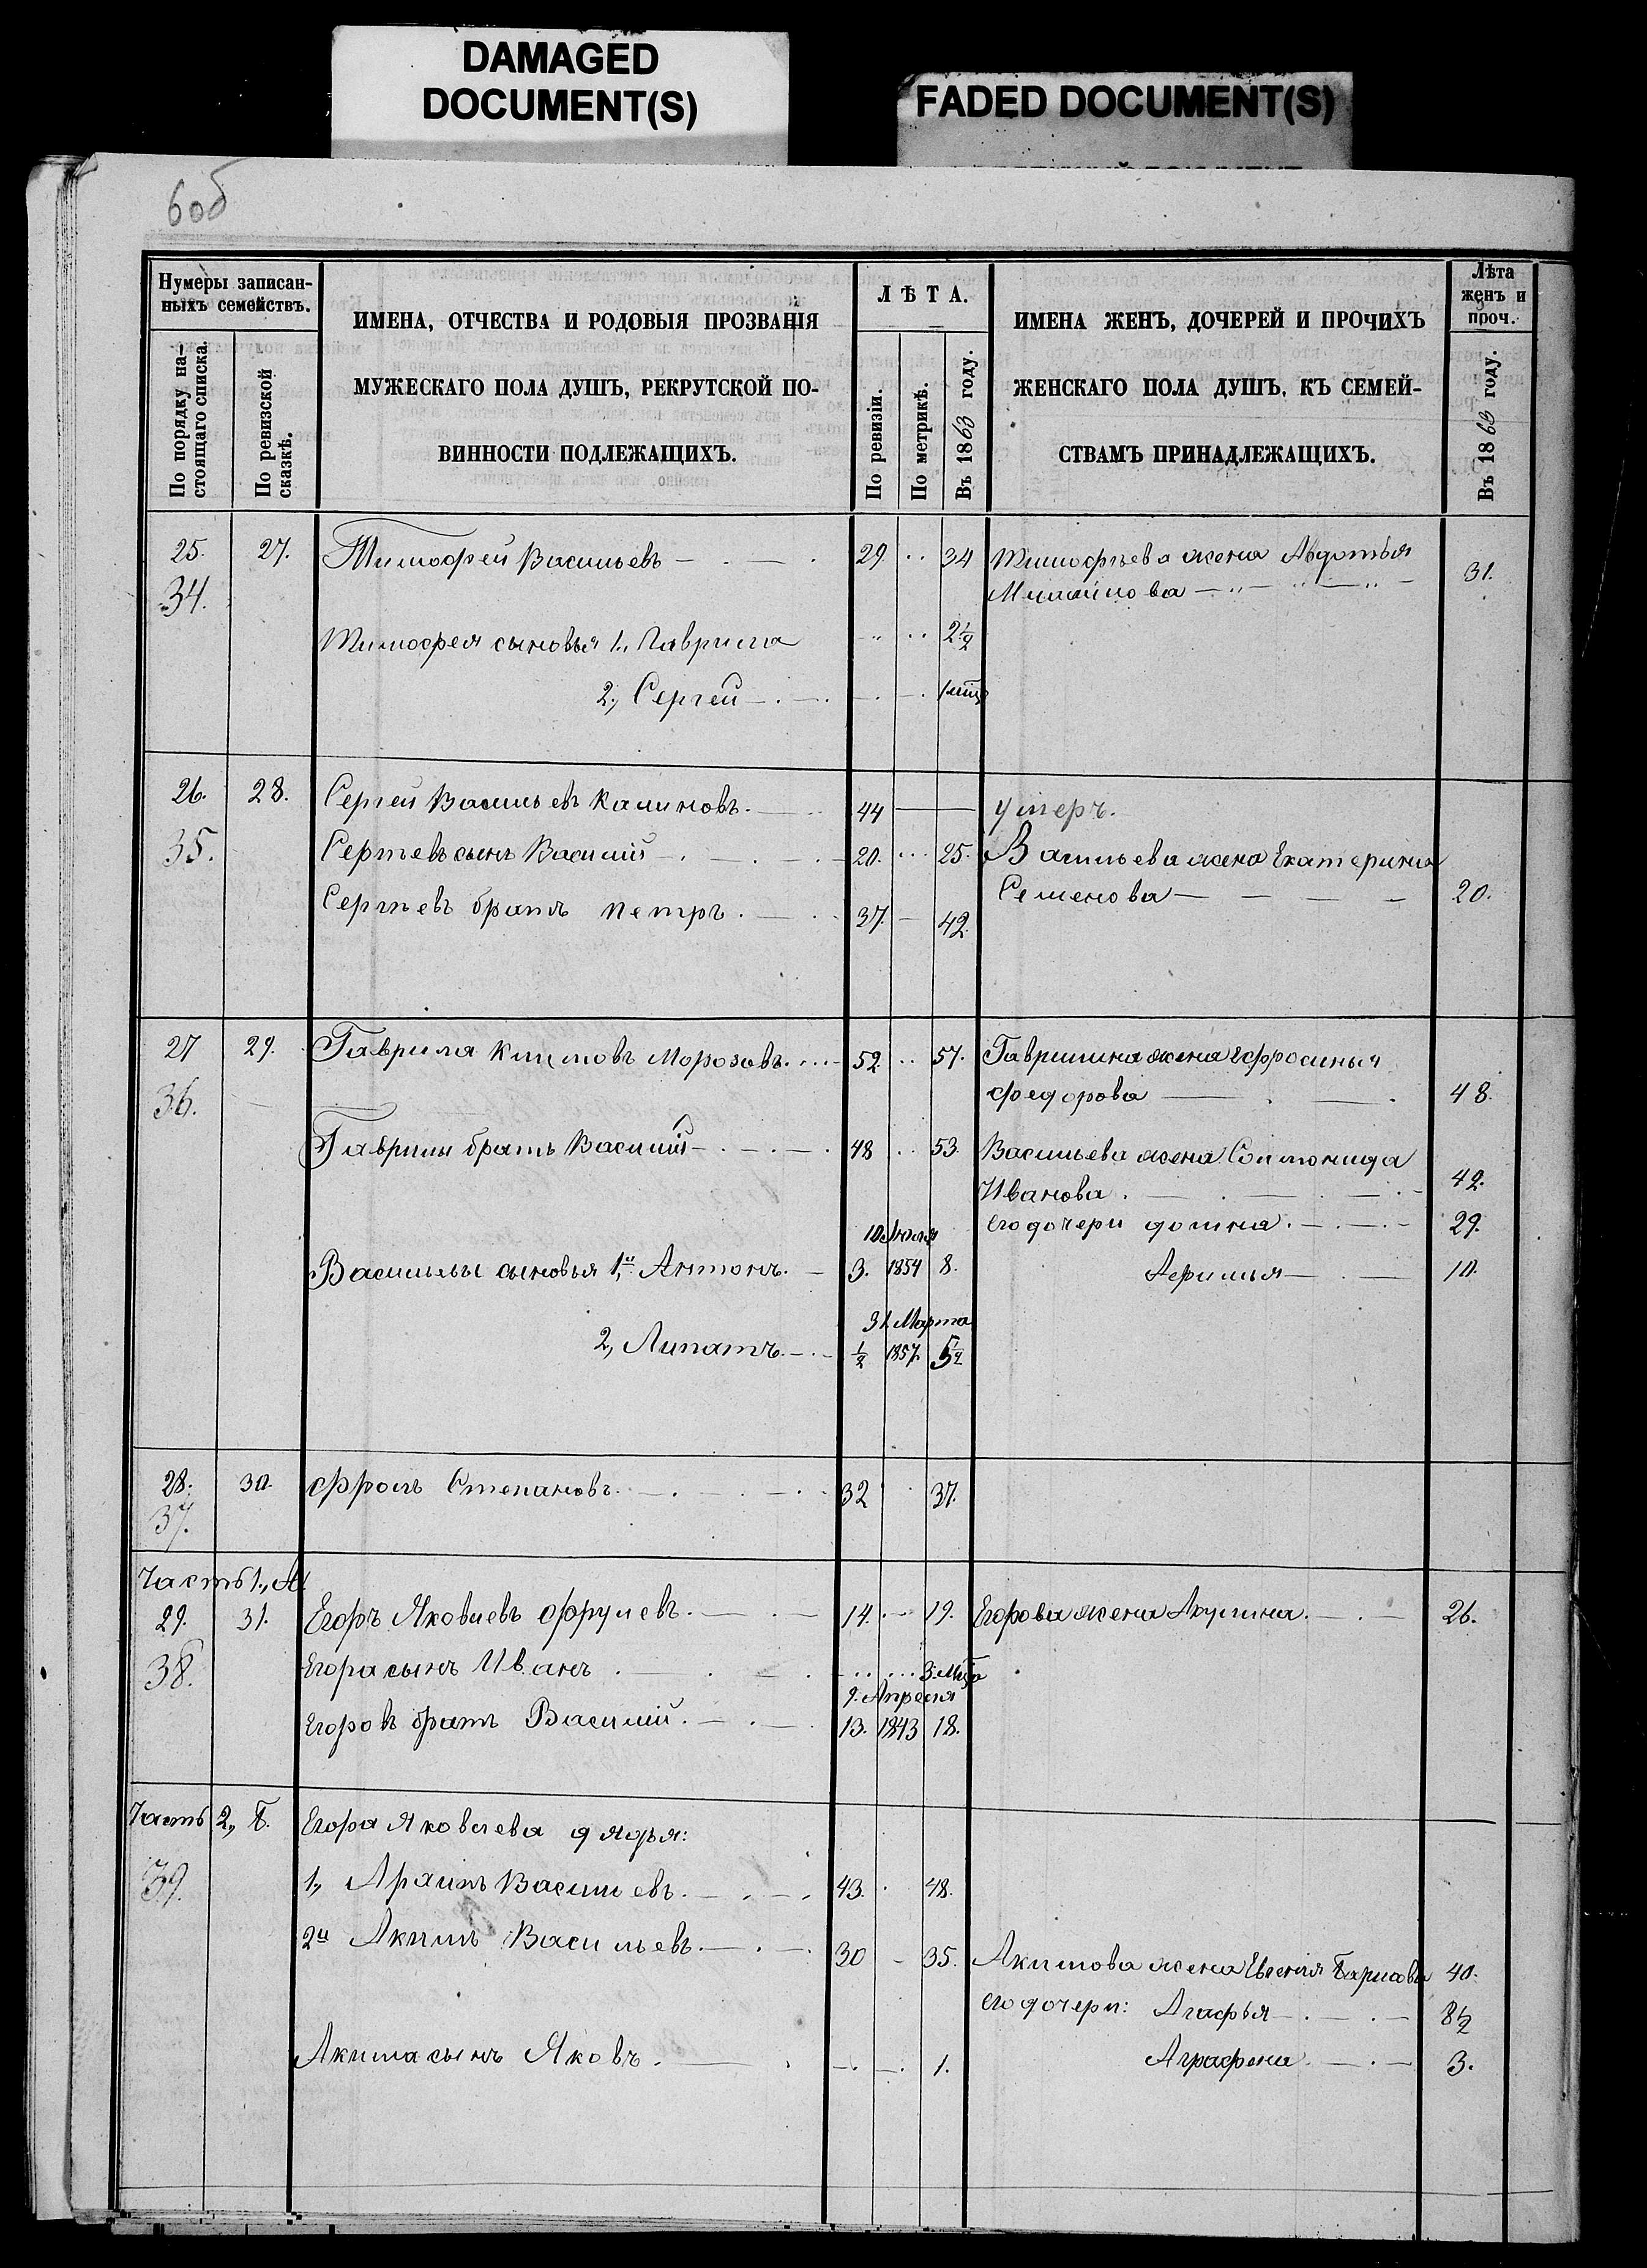 DAMAGED
DOCUMENT(S)
FADED DOCUMENT(S)
6об
Нумеры записан-
ныхъ семействъ.
По порядку на-
стоящаго списка.
По ревизской
сказкѣ.
ИМЕНА, ОТЧЕСТВА И РОДОВЫЯ ПРОЗВАНІЯ
МУЖЕСКАГО ПОЛА ДУШЪ, РЕКРУТСКОЙ ПО-
ВИННОСТИ ПОДЛЕЖАЩИХЪ.
ЛѢТА.
По ревизіи.
По метрикѣ.
Въ 1863 году.
ИМЕНА ЖЕНЪ, ДОЧЕРЕЙ И ПРОЧИХЪ
ЖЕНСКАГО ПОЛА ДУШЪ, КЪ СЕМЕЙ-
СТВАМЪ ПРИНАДЛЕЖАЩИХЪ.
Лѣта
женъ и
проч.
Въ 1863 году.
25. 27. Тимофей Васильевъ 29. 34 Тимофѣева жена Авдотья
34. 31.
Тимофея сыновья 1., Гаврила 2½
2., Сергей 1 мѣс
26. 28. Сергей Васильевъ Калиновъ. 44 умеръ.
35. Сергѣевъ сынъ Василій 20. 25. Васильева жена Екатерина
Семенова 20.
Сергѣевъ братъ Петръ. 37. 42.
27 29. Гаврила Климовъ Морозовъ. 52. 57. Гаврилина жена Ефросинья
36. Федорова 48.
Гаврилы братъ Василій 48 53. Васильева жена Соломонида
Иванова. 42.
10 Июля его дочери Домна. 29.
Васильевы сыновья 1й, Антонъ. 3. 1854 8. 10.
31 Марта
2, Липатъ. ½ 1857. 5½
28. 30. Фролъ Степановъ. 32 37.
37.
Часть 1., А
29. 31. Егоръ Яковлевъ Фрулевъ. 14. 19. Егорова жена Акулина. 26.
38. Егора сынъ Иванъ. 3. мѣс
9. Апреля
Егоровъ братъ Василий. 13. 1843 18.
Часть 2, Б. Егора Яковлева дядья:
39. 1, Васильевъ. 43. 48.
2й Акимъ Васильевъ. 30 35. Акимова жена Евгения 40.
его дочери: Агафья 8½
Акима сынъ Яковъ. 1. Аграфена. 3.